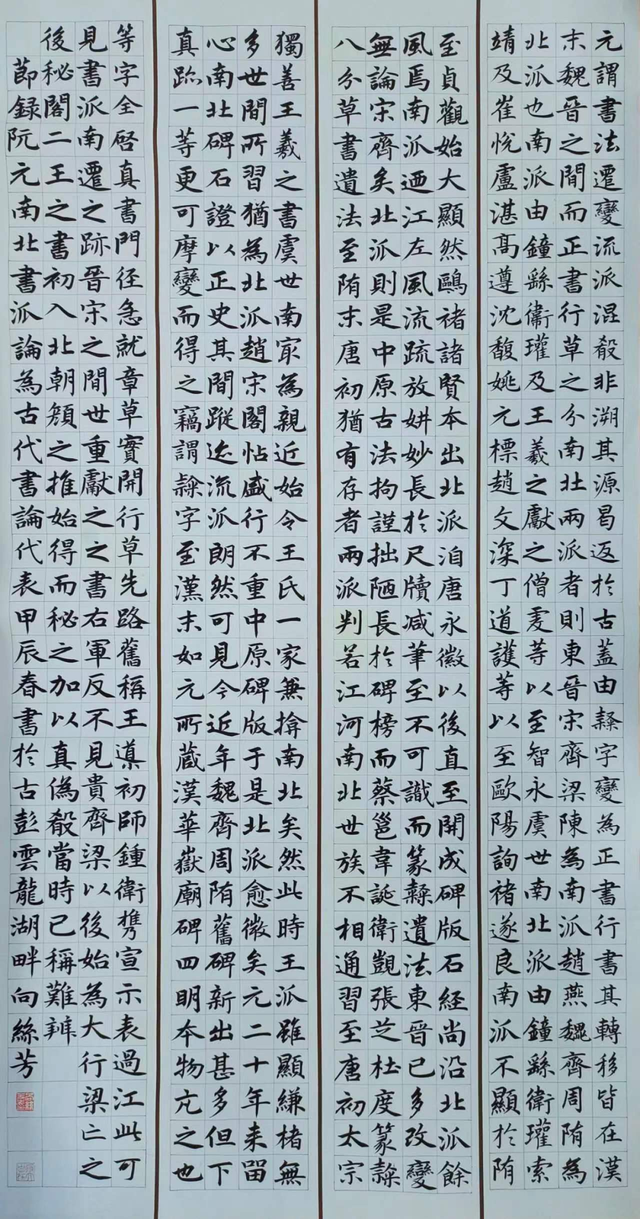 元謂書法遷變流派混殽非溯其源曷返於古蓋由隸字變為正書行書其轉移皆在漢
末魏晉之間而正書行草之分南北兩派者則東晉宋齊梁陳為南派趙燕魏齊周隋為
北派也南派由鐘繇衛瓘及王羲之獻之僧虔等以至智永虞世南北派由鐘繇衛瓘索
靖及崔悅盧湛高遵沈馥姚元標趙文深丁道護等以至歐陽詢褚遂良南派不顯於隋
至貞觀始大顯然歐褚諸賢本出北派洎唐永徽以後直至開成碑版石經尚沿北派餘
風焉南派迺江左風流疏放妍妙長於尺牘減筆至不可識而篆隸遺法東晉已多改變
無論宋齊矣北派則是中原古法拘謹拙陋長於碑榜而蔡邕韋誕衛覬張芝杜度篆隸
八分草書遺法至隋末唐初猶有存者兩派判若江河南北世族不相通習至唐初太宗
獨善王羲之書虞世南㝡為親近始令王氏一家兼揜南北矣然此時王派雖顯縑楮無
多世間所習猶為北派趙宋閣帖盛行不重中原碑版于是北派愈微矣元二十年来留
心南北碑石證以正史其間蹤迹流派朗然可見今近年魏齊周隋舊碑新出甚多但下
真跡一等更可摩變而得之竊謂隸字至漢末如元所藏漢華嶽廟碑四明本物亢之也
等字全啓真書門徑急就章草實開行草先路舊稱王導初師鐘衛攜宣示表過江此可
見書派南遷之跡晉宋之間世重獻之之書右軍反不見貴齊梁以後始為大行梁亡之
後秘閣二王之書初入北朝顏之推始得而秘之加以真偽殽當時已稱難辨
節録阮元南北書派論為古代書論代表甲辰春書於古彭雲龍湖畔向絲芳